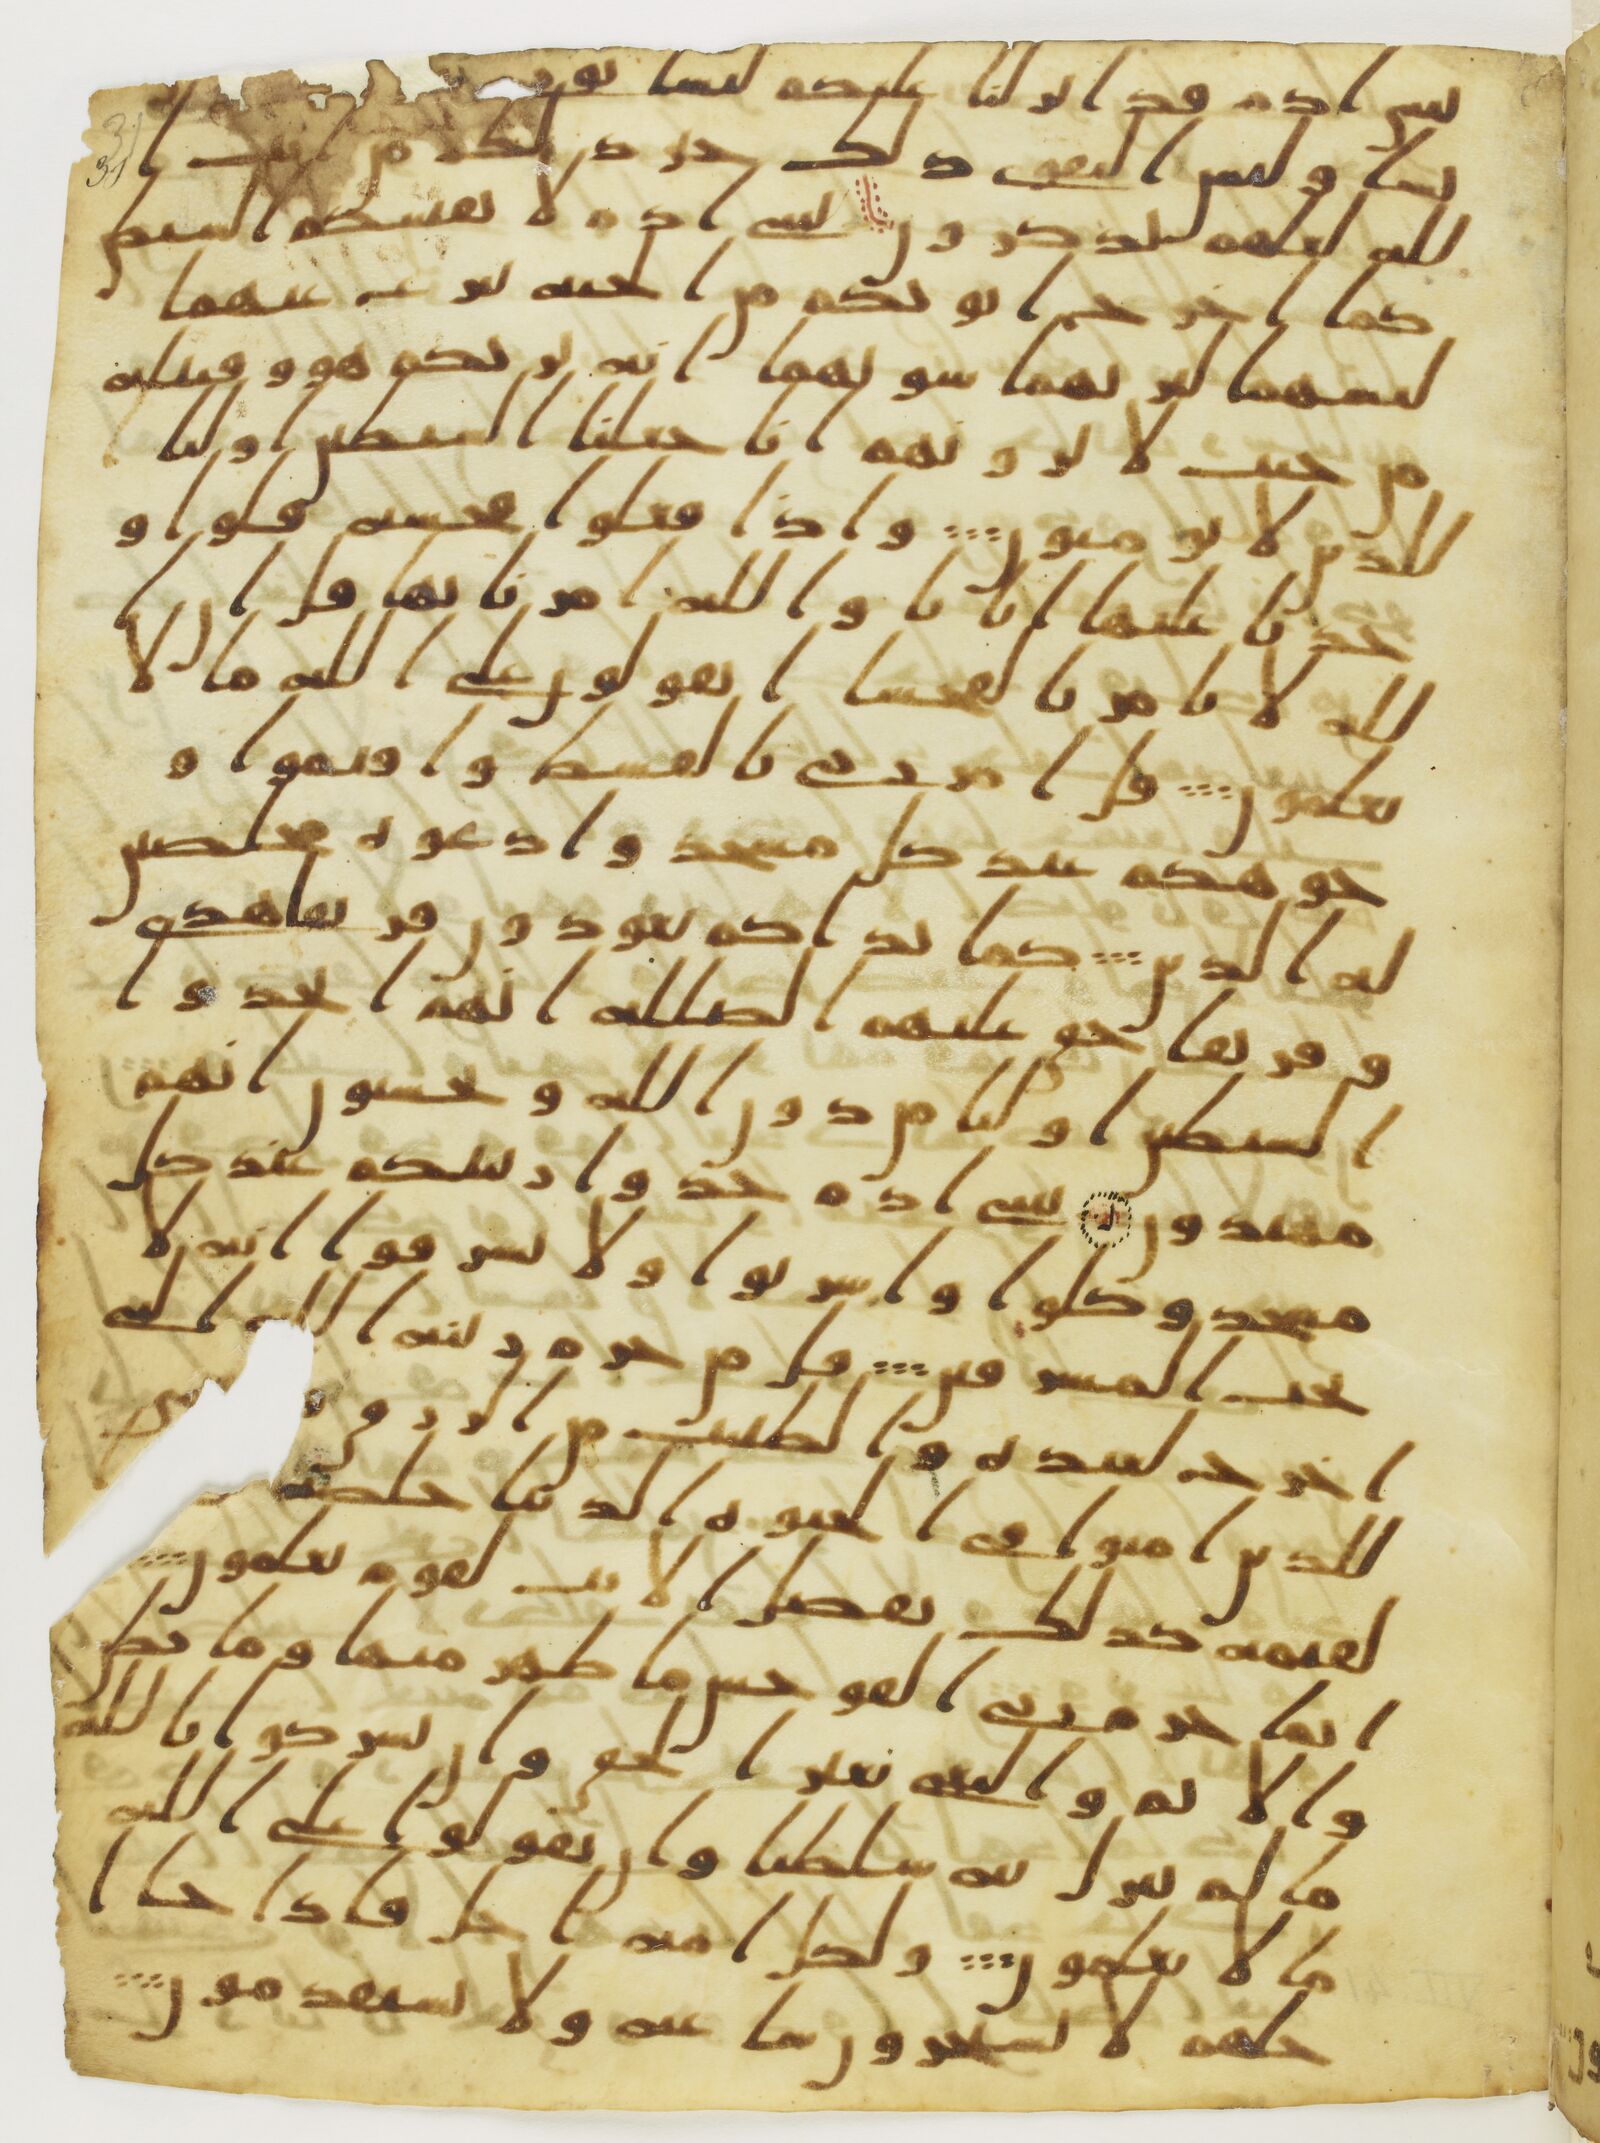 يبنى ادم قد انزلنا عليكم لبسا يورى
يشا ولبس التقوى ذلك خير ذلكم من ايت ا
لله لعلهم يذكرون يبنى ادم لا يفتننكم الشيطن
كما اخرج ابويكم من الجنة ينزع عنهما
لبسهما ليريهما سوتهما انه يريكم هو وقبيله
من حيث لا ترونهم انا جعلنا الشيطين اوليا
للذين لا يومنون واذا فعلوا فحشة قلوا و
جدنا عليها ابانا والله امرنا بها قل ان ا
لله لا يامر بالفحشا اتقولون على الله ما لا
تعلمون قل امر ربى بالقسط واقيموا و
جوهكم عند كل مسجد وادعوه مخلصين
له الدين كما بداكم تعودون فريقا هدى
وفريقا حق عليهم الضللة انهم اتخذوا
الشيطين اوليا من دون الله ويحسبون انهم
مهتدون يبنى ادم خذوا زينتكم عند كل
مسجد وكلوا واشربوا ولا تسرفوا انه لا
يحب المسرفين قل من حرم زينة الله التى
اخرج لعبده والطيبت من الرزق
للذين امنوا فى الحيوة الدنيا خلصة
لقيمة كذلك نفصل الايت لقوم يعلمون
انما حرم ربى الفوحش ما ظهر منها وما بطن
والاثم والبغى بغير الحق وان تشركوا بالله
ما لم ينزل به سلطنا وان تقولوا على الله
ما لا تعلمون ولكل امة اجل فاذا جا ا
جلهم لا يستخرون ساعة ولا يستقدمون